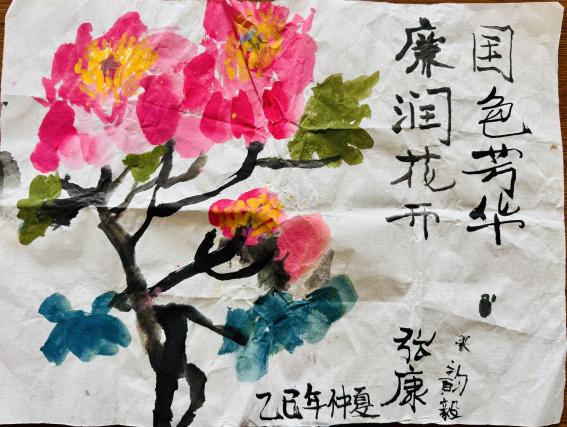 国色芳华
廉润花开
张康
韵毅
乙巳年仲夏